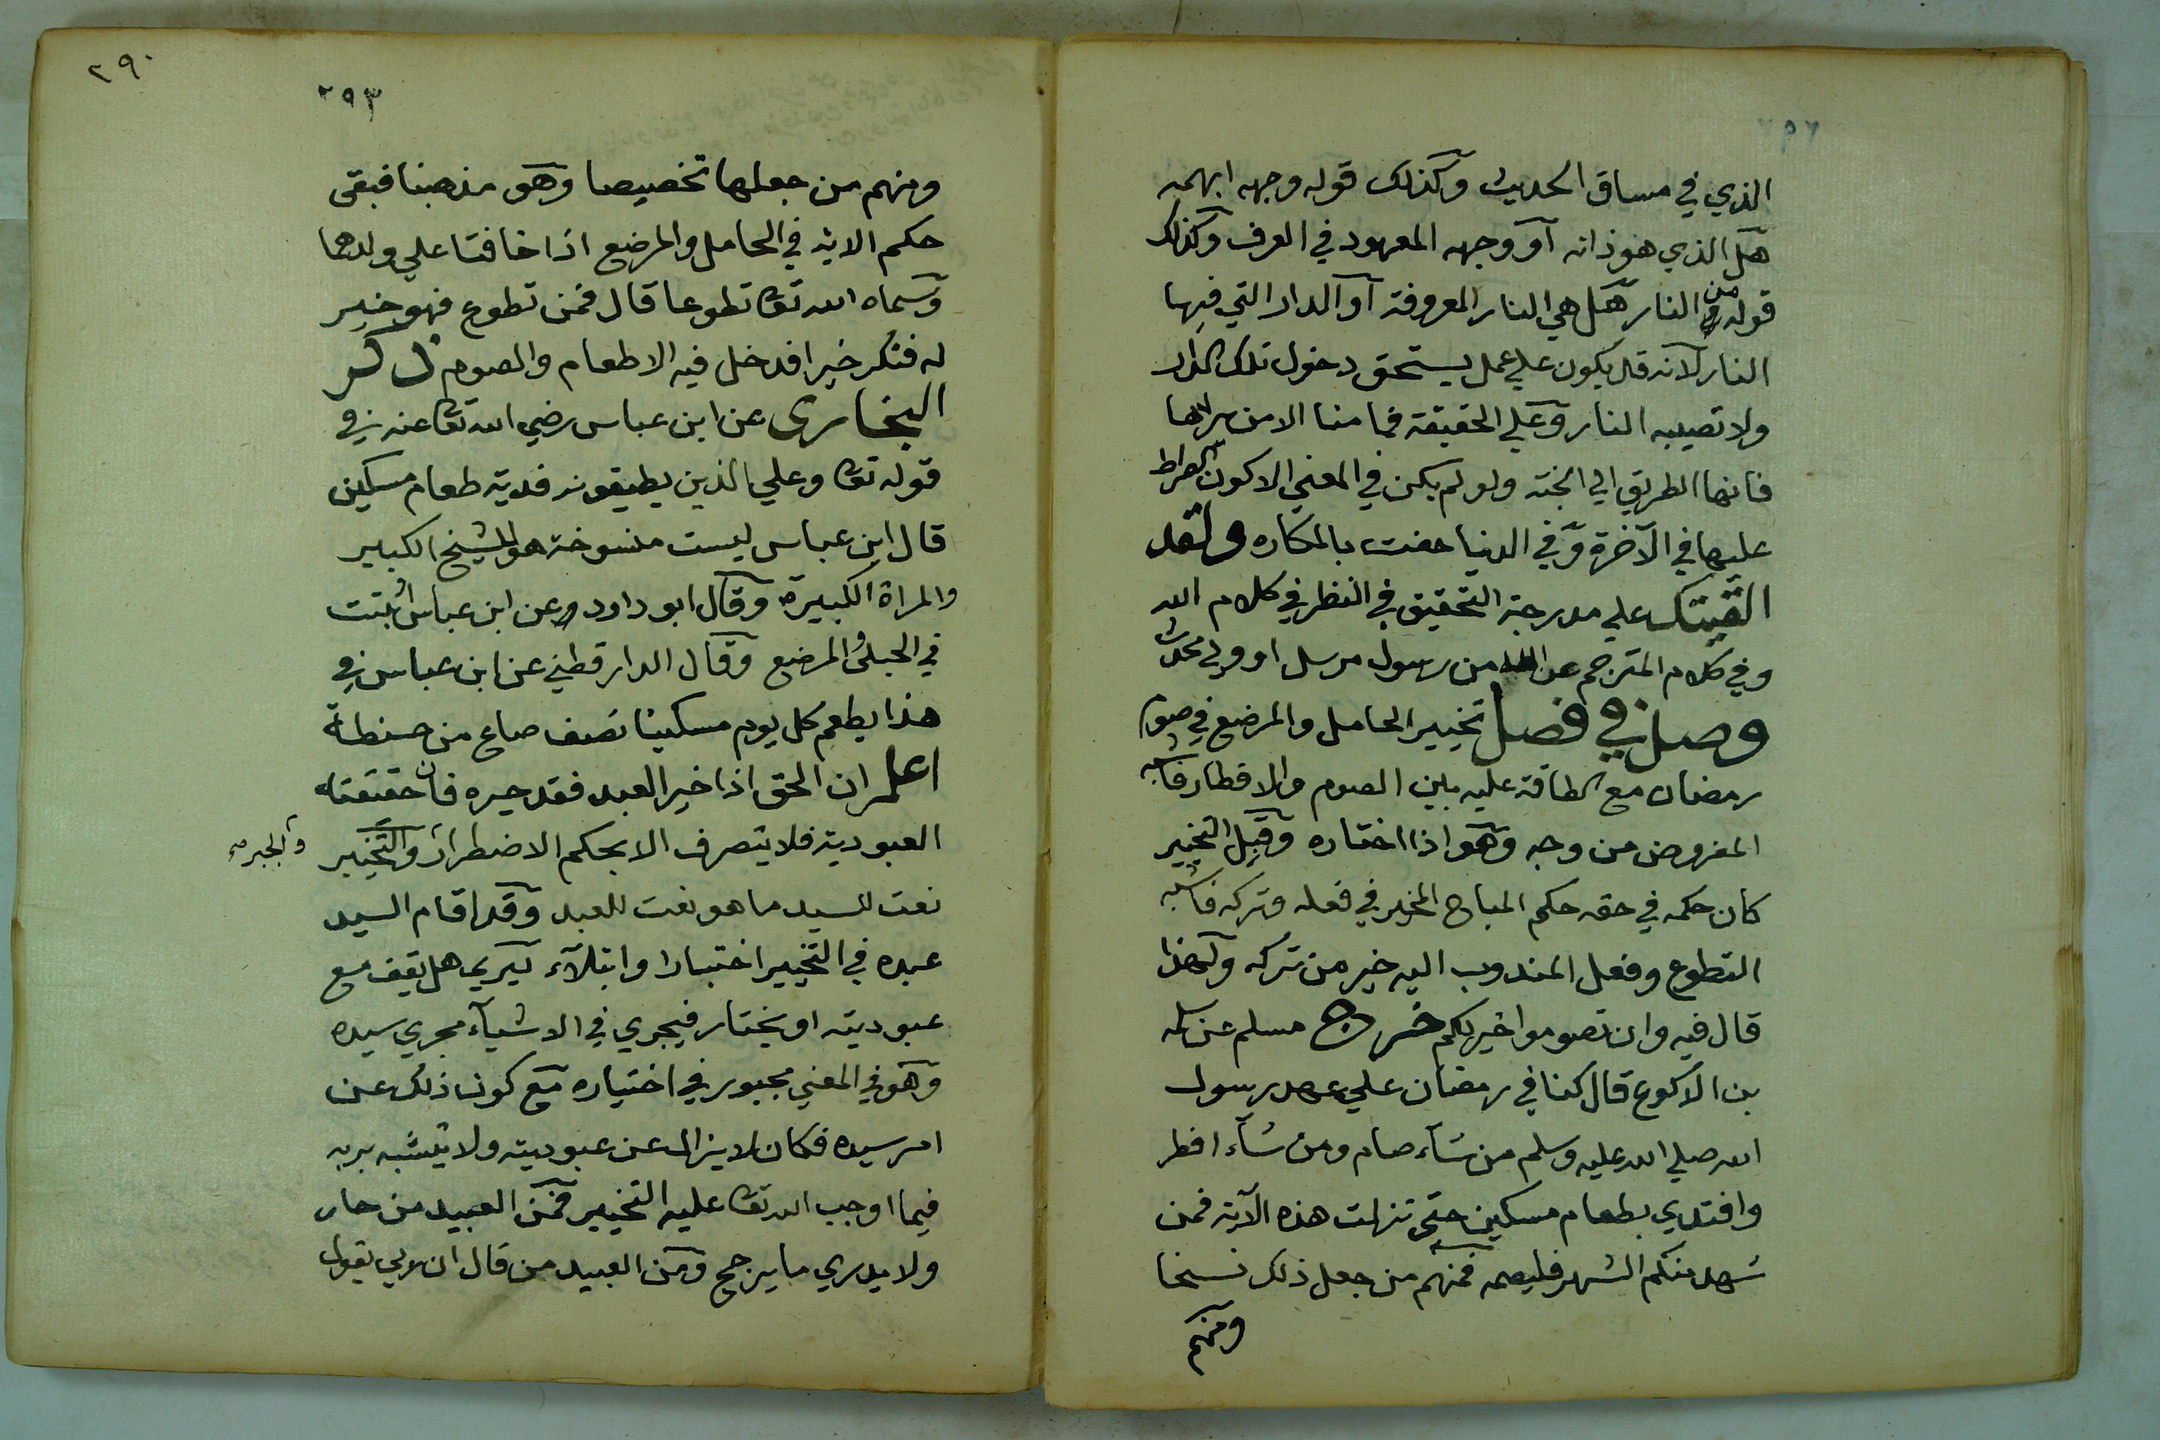 الذي في مساق الحديث وكذلك قوله وجهه ابهمه
هل الذي هو ذاته او وجهه المعهود في العرف وكذلك
قوله من النار هل هي النار المعروفة او الدار التي فيها
النار لانه قد يكون علي عمل يستحق دخول تلك الدار
ولا تصيبه النار وعلي الحقيقة فما منا الا من يردها
فانها الطريق الي الجنة ولو لم يكن في المعني الا كون الصراط
عليها في الآخرة وفي الدنيا حفت بالمكاره ولقد
القيتك علي مدرجة التحقيق في النظر في كلام الله
وفي كلام المترجم عن الله من رسول مرسل او ولي محدث
وصل في فصل تخيير الحامل والمرضع في صوم
رمضان مع الطاقة عليه بين الصوم والافطار فاشبه
المفروض من وجه وهو اذا اختاره وقبل التخيير
كان حكمه في حقه حكم المباح المخير في فعله وتركه فاشبه
التطوع وفعل المندوب اليه خير من تركه ولهذا
قال فيه وان تصوموا خير لكم خرج مسلم عن سلمه
بن الاكوع قال كنا في رمضان علي عهد رسول
الله صلي الله عليه وسلم من شآء صام ومن شآء افطر
وافتدي بطعام مسكين حتي نزلت هذه الآية فمن
شهد منكم الشهر فليصمه فمنهم من جعل ذلك نسخا
ومنهم
٢٩٠
٢٩٣
ومنهم من جعلها تخصيصا وهو مذهبنا فبقي
حكم الاية في الحامل والمرضع اذا خافتا علي ولدهما
وسماه الله تعا تطوعا قال فمن تطوع فهو خير
له فنكر خيرا فدخل فيه الاطعام والصوم ذكر
البخاري عن ابن عباس رضي الله تعا عنه في
قوله تعا وعلي الذين يطيقونه فدية طعام مسكين
قال ابن عباس ليست منسوخة هو للشيخ الكبير
والمراة الكبيرة وقال ابو داود عن ابن عباس اثبتت
في الحبلي والمرضع وقال الدارقطني عن ابن عباس في
هذا يطعم كل يوم مسكينا نصف صاع من حنطة
اعلم ان الحق اذا خير العبد فقد حيره فان حقيقته
العبودية فلا يتصرف الا بحكم الاضطرار والتخيير
والجبر صح
نعت للسيد ما هو نعت للعبد وقد اقام السيد
عبده في التخيير اختبارا وابتلآء ليري هل يقف مع
عبوديته او يختار فيجري في الاشيآء مجري سيده
وهو في المعني مجبور في اختياره مع كون ذلك عن
امر سيده فكان لا يزال عن عبوديته ولا يتشبه بربه
فيما اوجب الله تعا عليه التخيير فمن العبيد من حار
ولا يدري ما يرجح ومن العبيد من قال ان ربي يقول